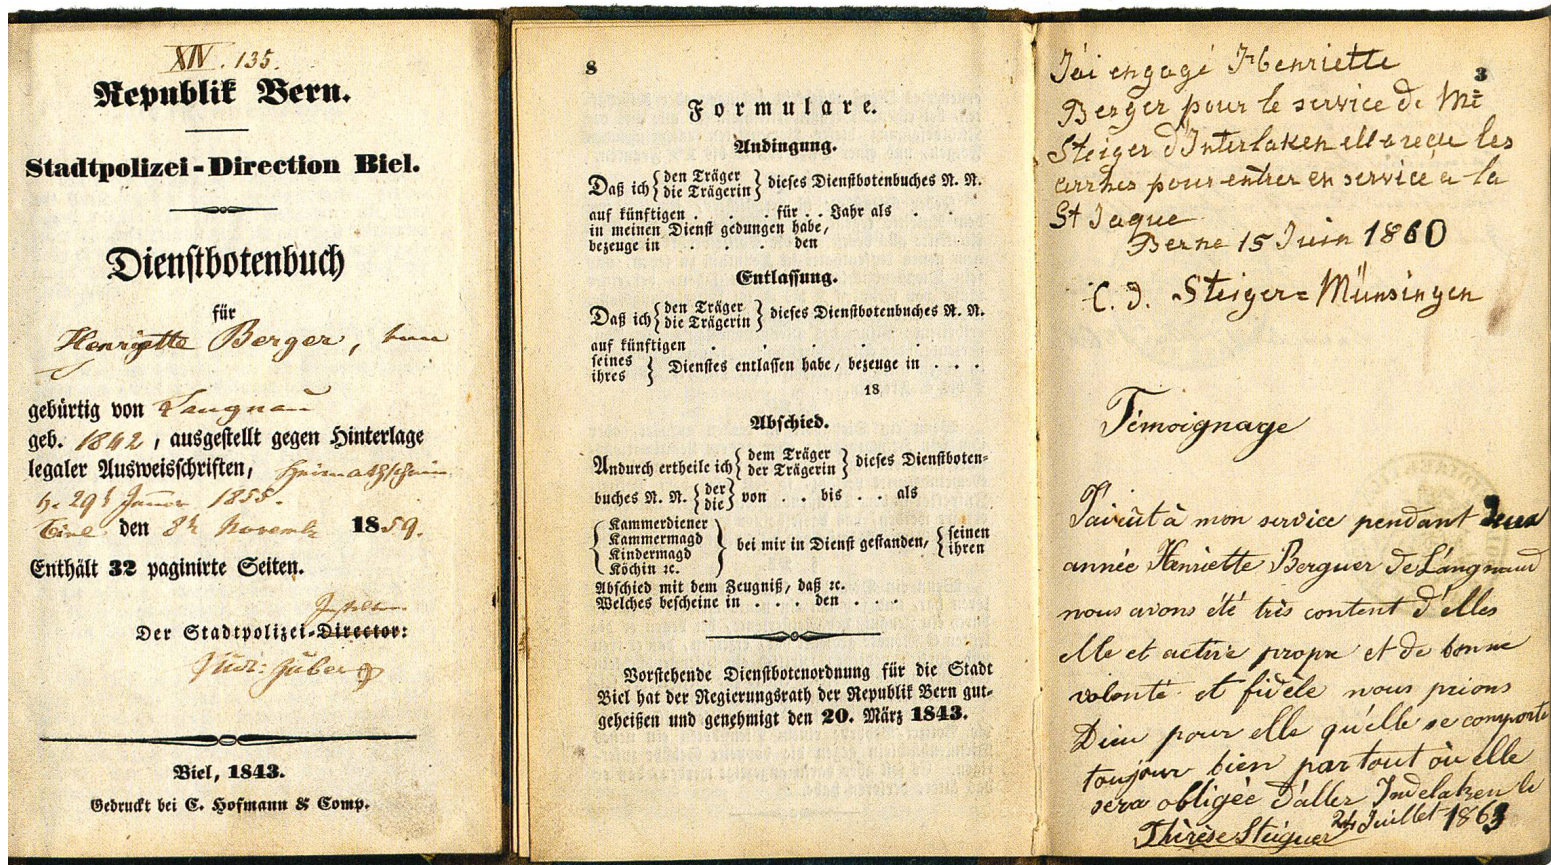 XIV. 135.
Republik Bern.
Stadtpolizei-Direction Biel.
Dienstbotenbuch
für
Henriette Berger,
gebürtig von Langnau
geb. 1842, ausgestellt gegen Hinterlage
legaler Ausweisschriften, Heimathschein
29t Jenner 1855.
Biel den 8t Novemb 1859.
Enthält 32 paginirte Seiten.
Der Stadtpolizei-Director:
Biel, 1843.
Gedruckt bei C. Hofmann & Comp.
8
Formulare.
Andingung.
Daß ich { den Träger / die Trägerin } dieses Dienstbotenbuches N. N.
auf künftigen . . . für . . Jahr als . .
in meinen Dienst gedungen habe,
bezeuge in . . . . den
Entlassung.
Daß ich { den Träger / die Trägerin } dieses Dienstbotenbuches N. N.
auf künftigen . . . . .
seines / ihres } Dienstes entlassen habe, bezeuge in . . .
18
Abschied.
Andurch ertheile ich { dem Träger / der Trägerin } dieses Dienstboten-
buches N. N. { der / die } von . . bis . . als
{ Kammerdiener / Kammermagd / Kindermagd / Köchin ꝛc. } bei mir in Dienst gestanden, { seinen / ihren
Abschied mit dem Zeugniß, daß ꝛc.
Welches bescheine in . . . den . . .
Vorstehende Dienstbotenordnung für die Stadt
Biel hat der Regierungsrath der Republik Bern gut-
geheißen und genehmigt den 20. März 1843.
3
J'ai engagé Henriette
Berger pour le service de Mr
Steiger d'Interlaken elle a reçue les
arrhes pour entrer en service a la
St Jaque
Berne 15 Juin 1860
C. J. Steiger=Münsingen
Témoignage
J'ai eût à mon service pendant deux
année Henriette Berguer de Langnaud
nous avons été très content d'elles
elle et active propre et de bonne
volonté et fidèle nous prions
Dieu pour elle qu'elle se comporte
toujour bien partout où elle
sera obligée d'aller Indelaken le
24 Juillet 1863
Thérèse Steiguer